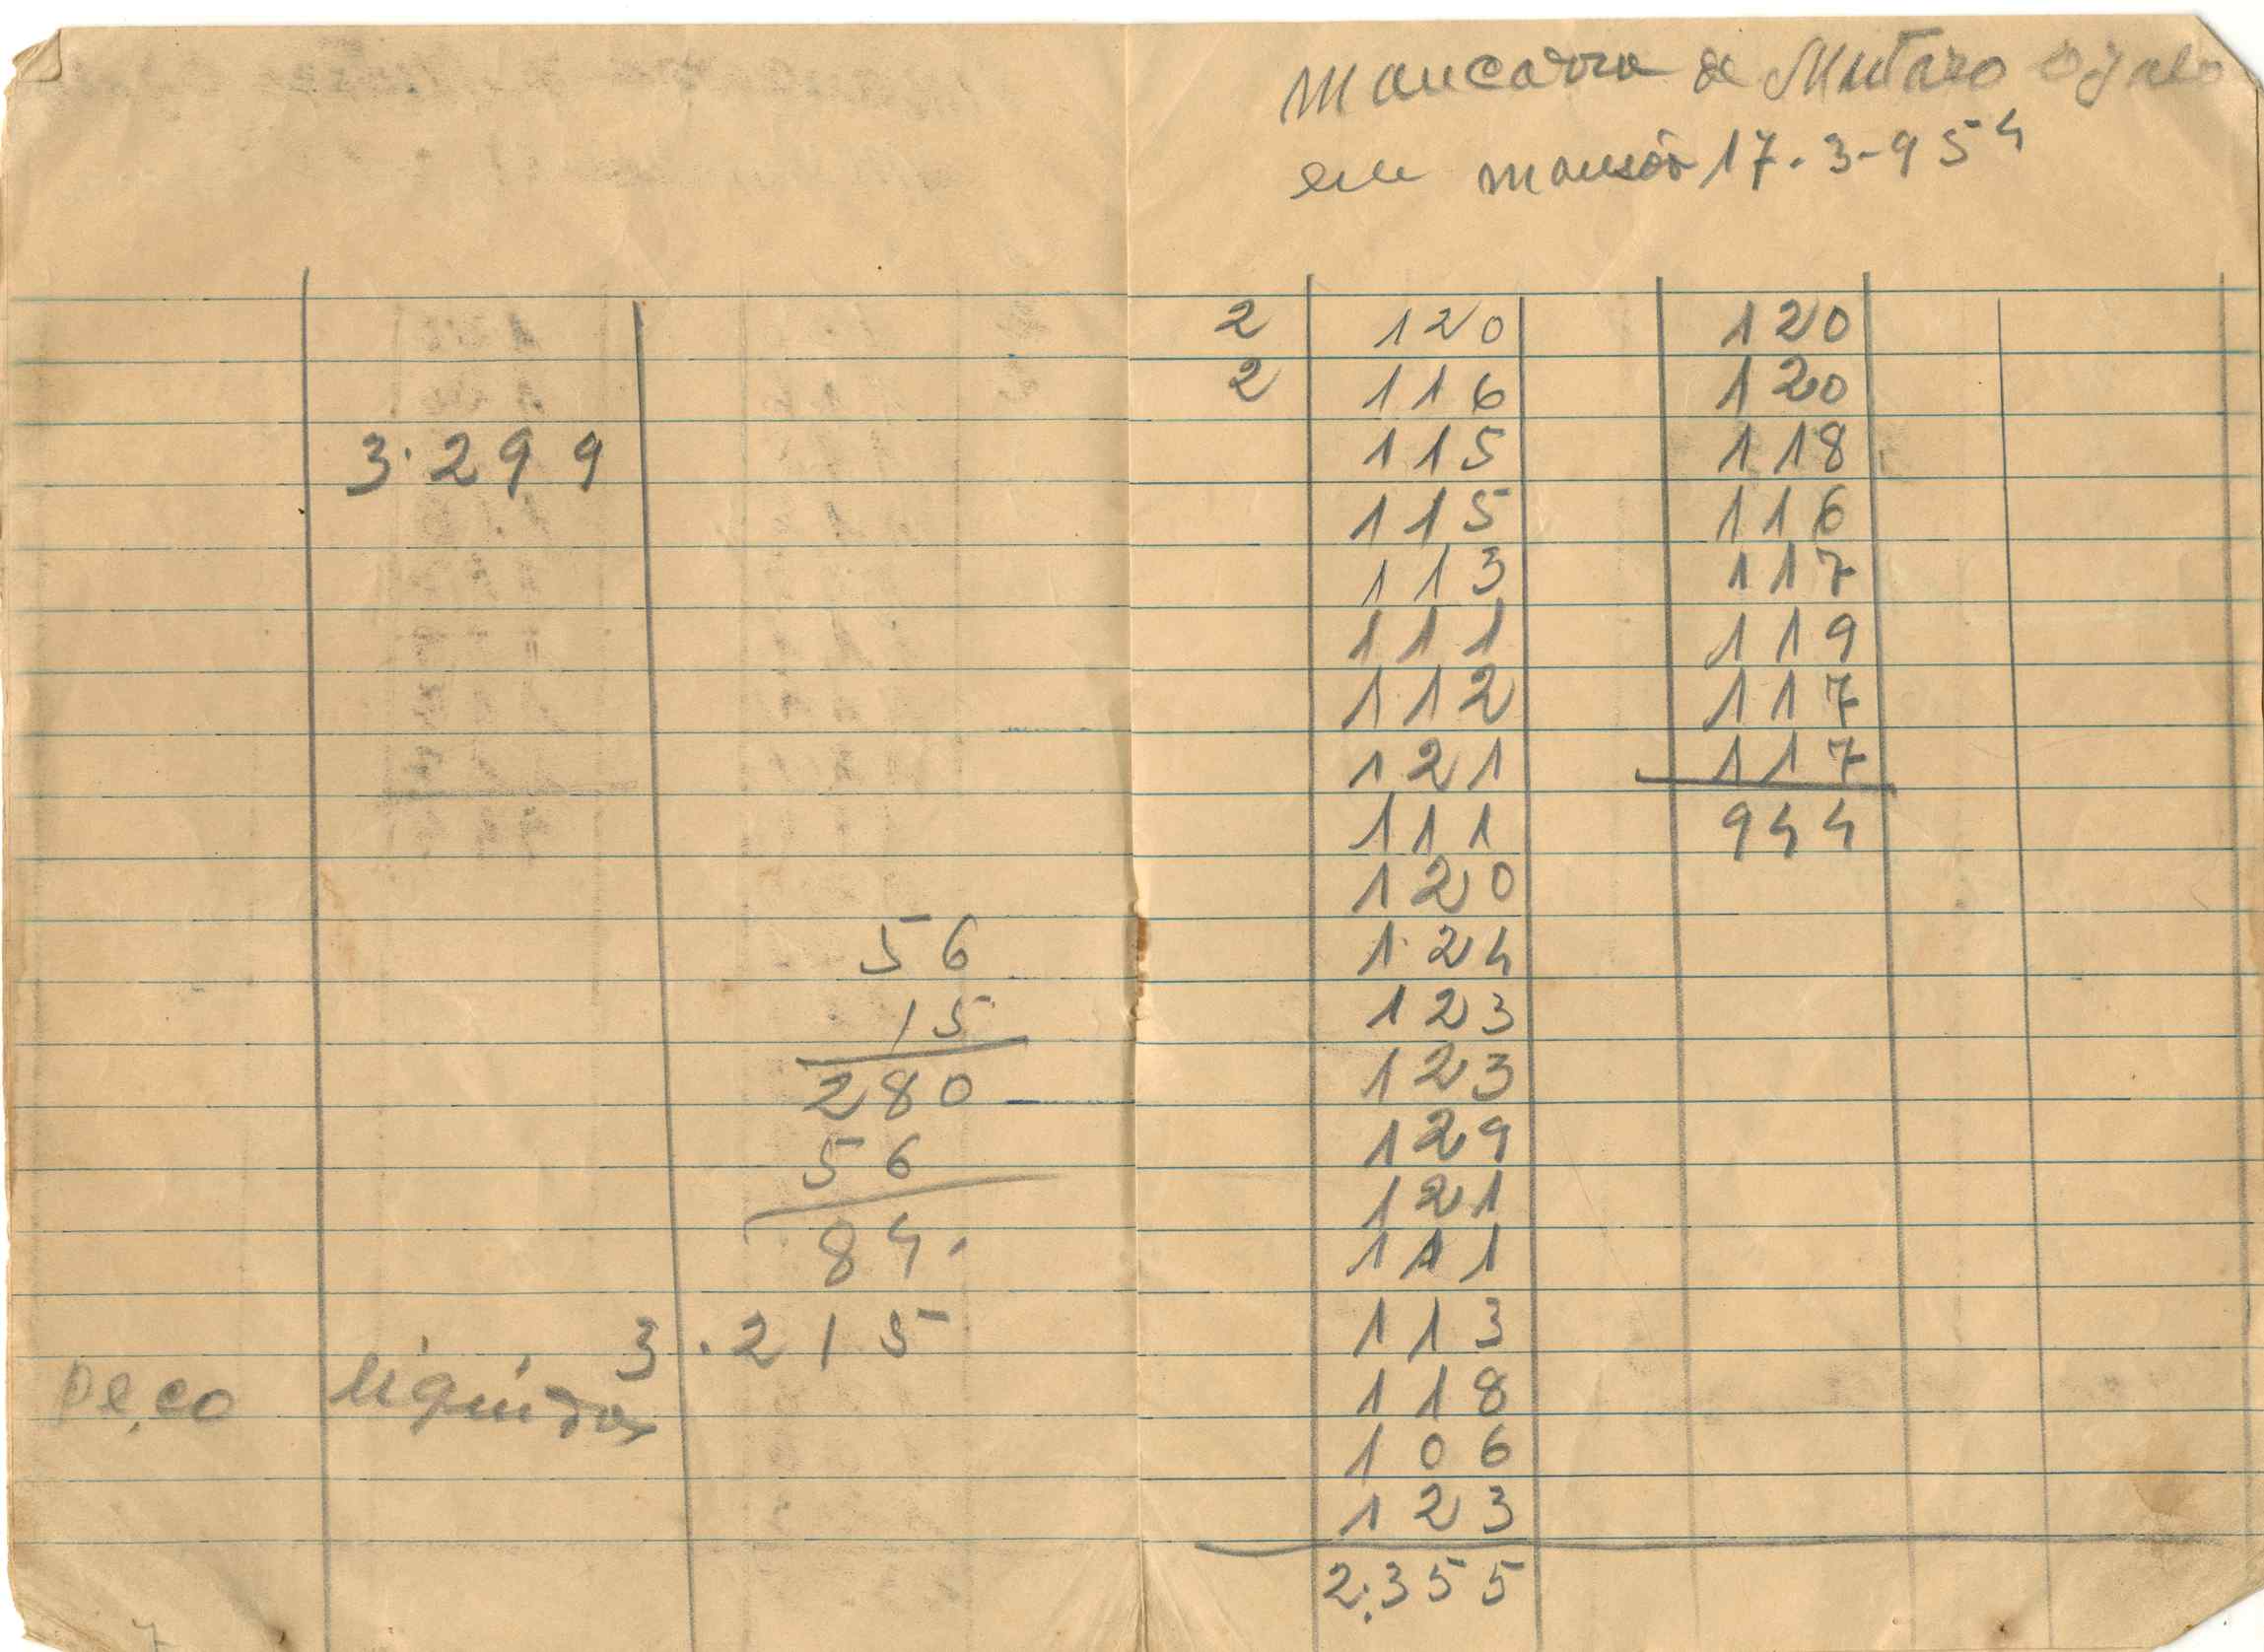 3.299
56
15
280
56
84.
3.215
Peço liquidos
Mancarra de Mutaro Djalo
em mansôa 17-3-954
2 120 120
2 116 120
115 118
115 116
113 117
111 119
112 117
121 117
111 944
120
124
123
123
129
121
111
113
118
106
123
2.355